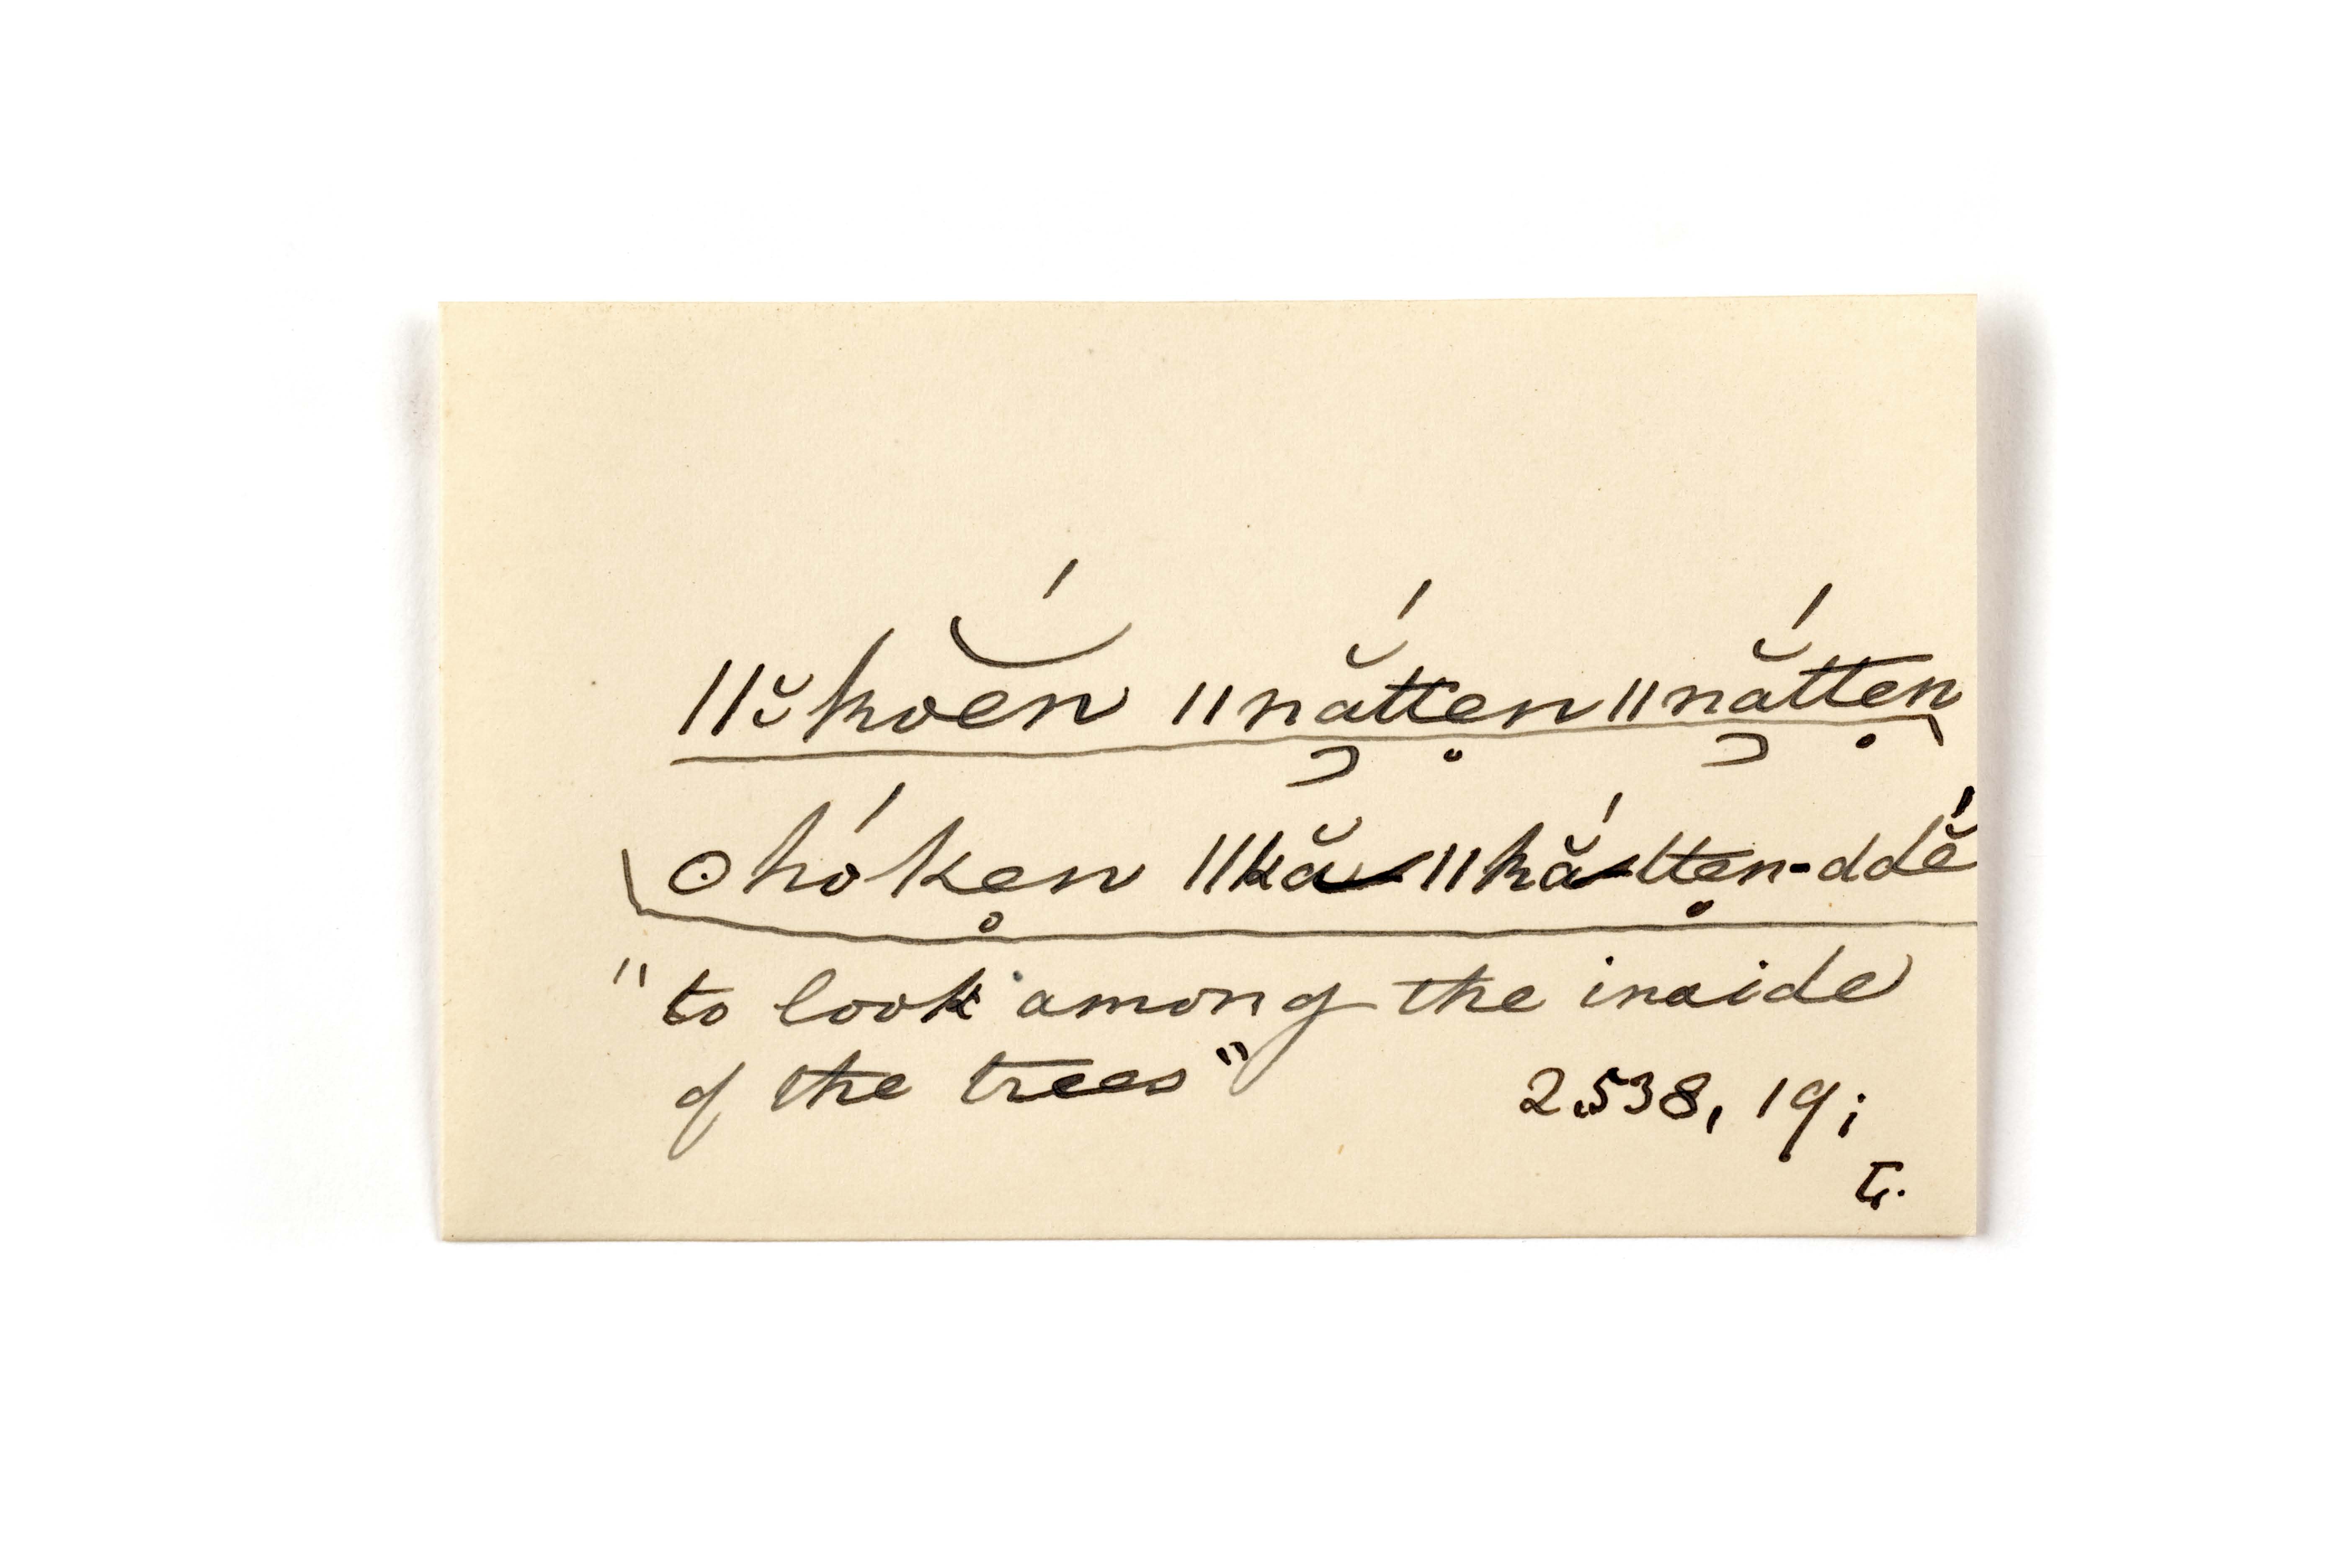 ǁ˘hoĕ́n ǁnắtten̥ ǁnắtten̥
ʘhóken̥ ǁkă-ǁkắ-tten̥-ddĕ́
"to look among the inside
of the trees"
2538, 19;